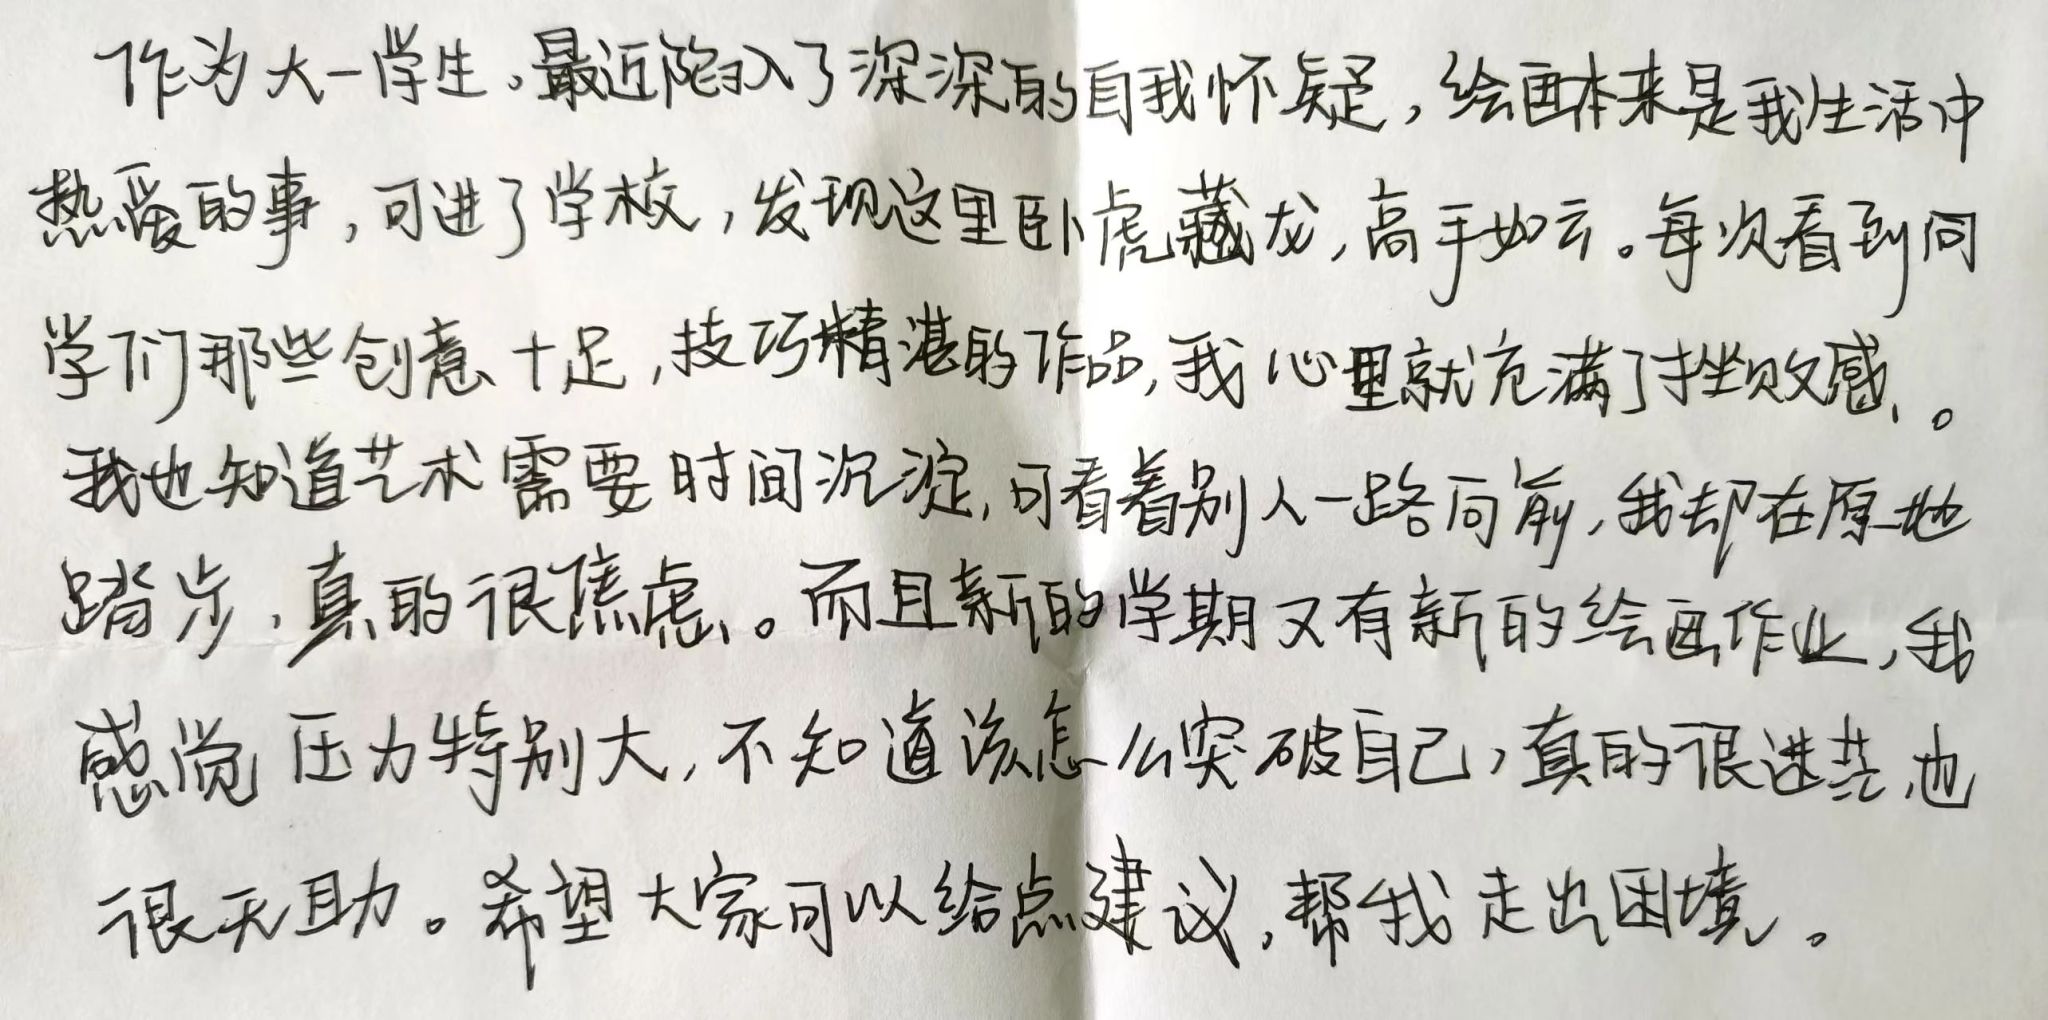 作为大一学生，最近陷入了深深的自我怀疑，绘画本来是我生活中
热爱的事，可进了学校，发现这里卧虎藏龙，高手如云。每次看到同
学们那些创意十足，技巧精湛的作品，我心里就充满了挫败感。
我也知道艺术需要时间沉淀，可看着别人一路向前，我却在原地
踏步，真的很焦虑。而且新的学期又有新的绘画作业，我
感觉压力特别大，不知道该怎么突破自己，真的很迷茫，也
很无助。希望大家可以给点建议，帮我走出困境。